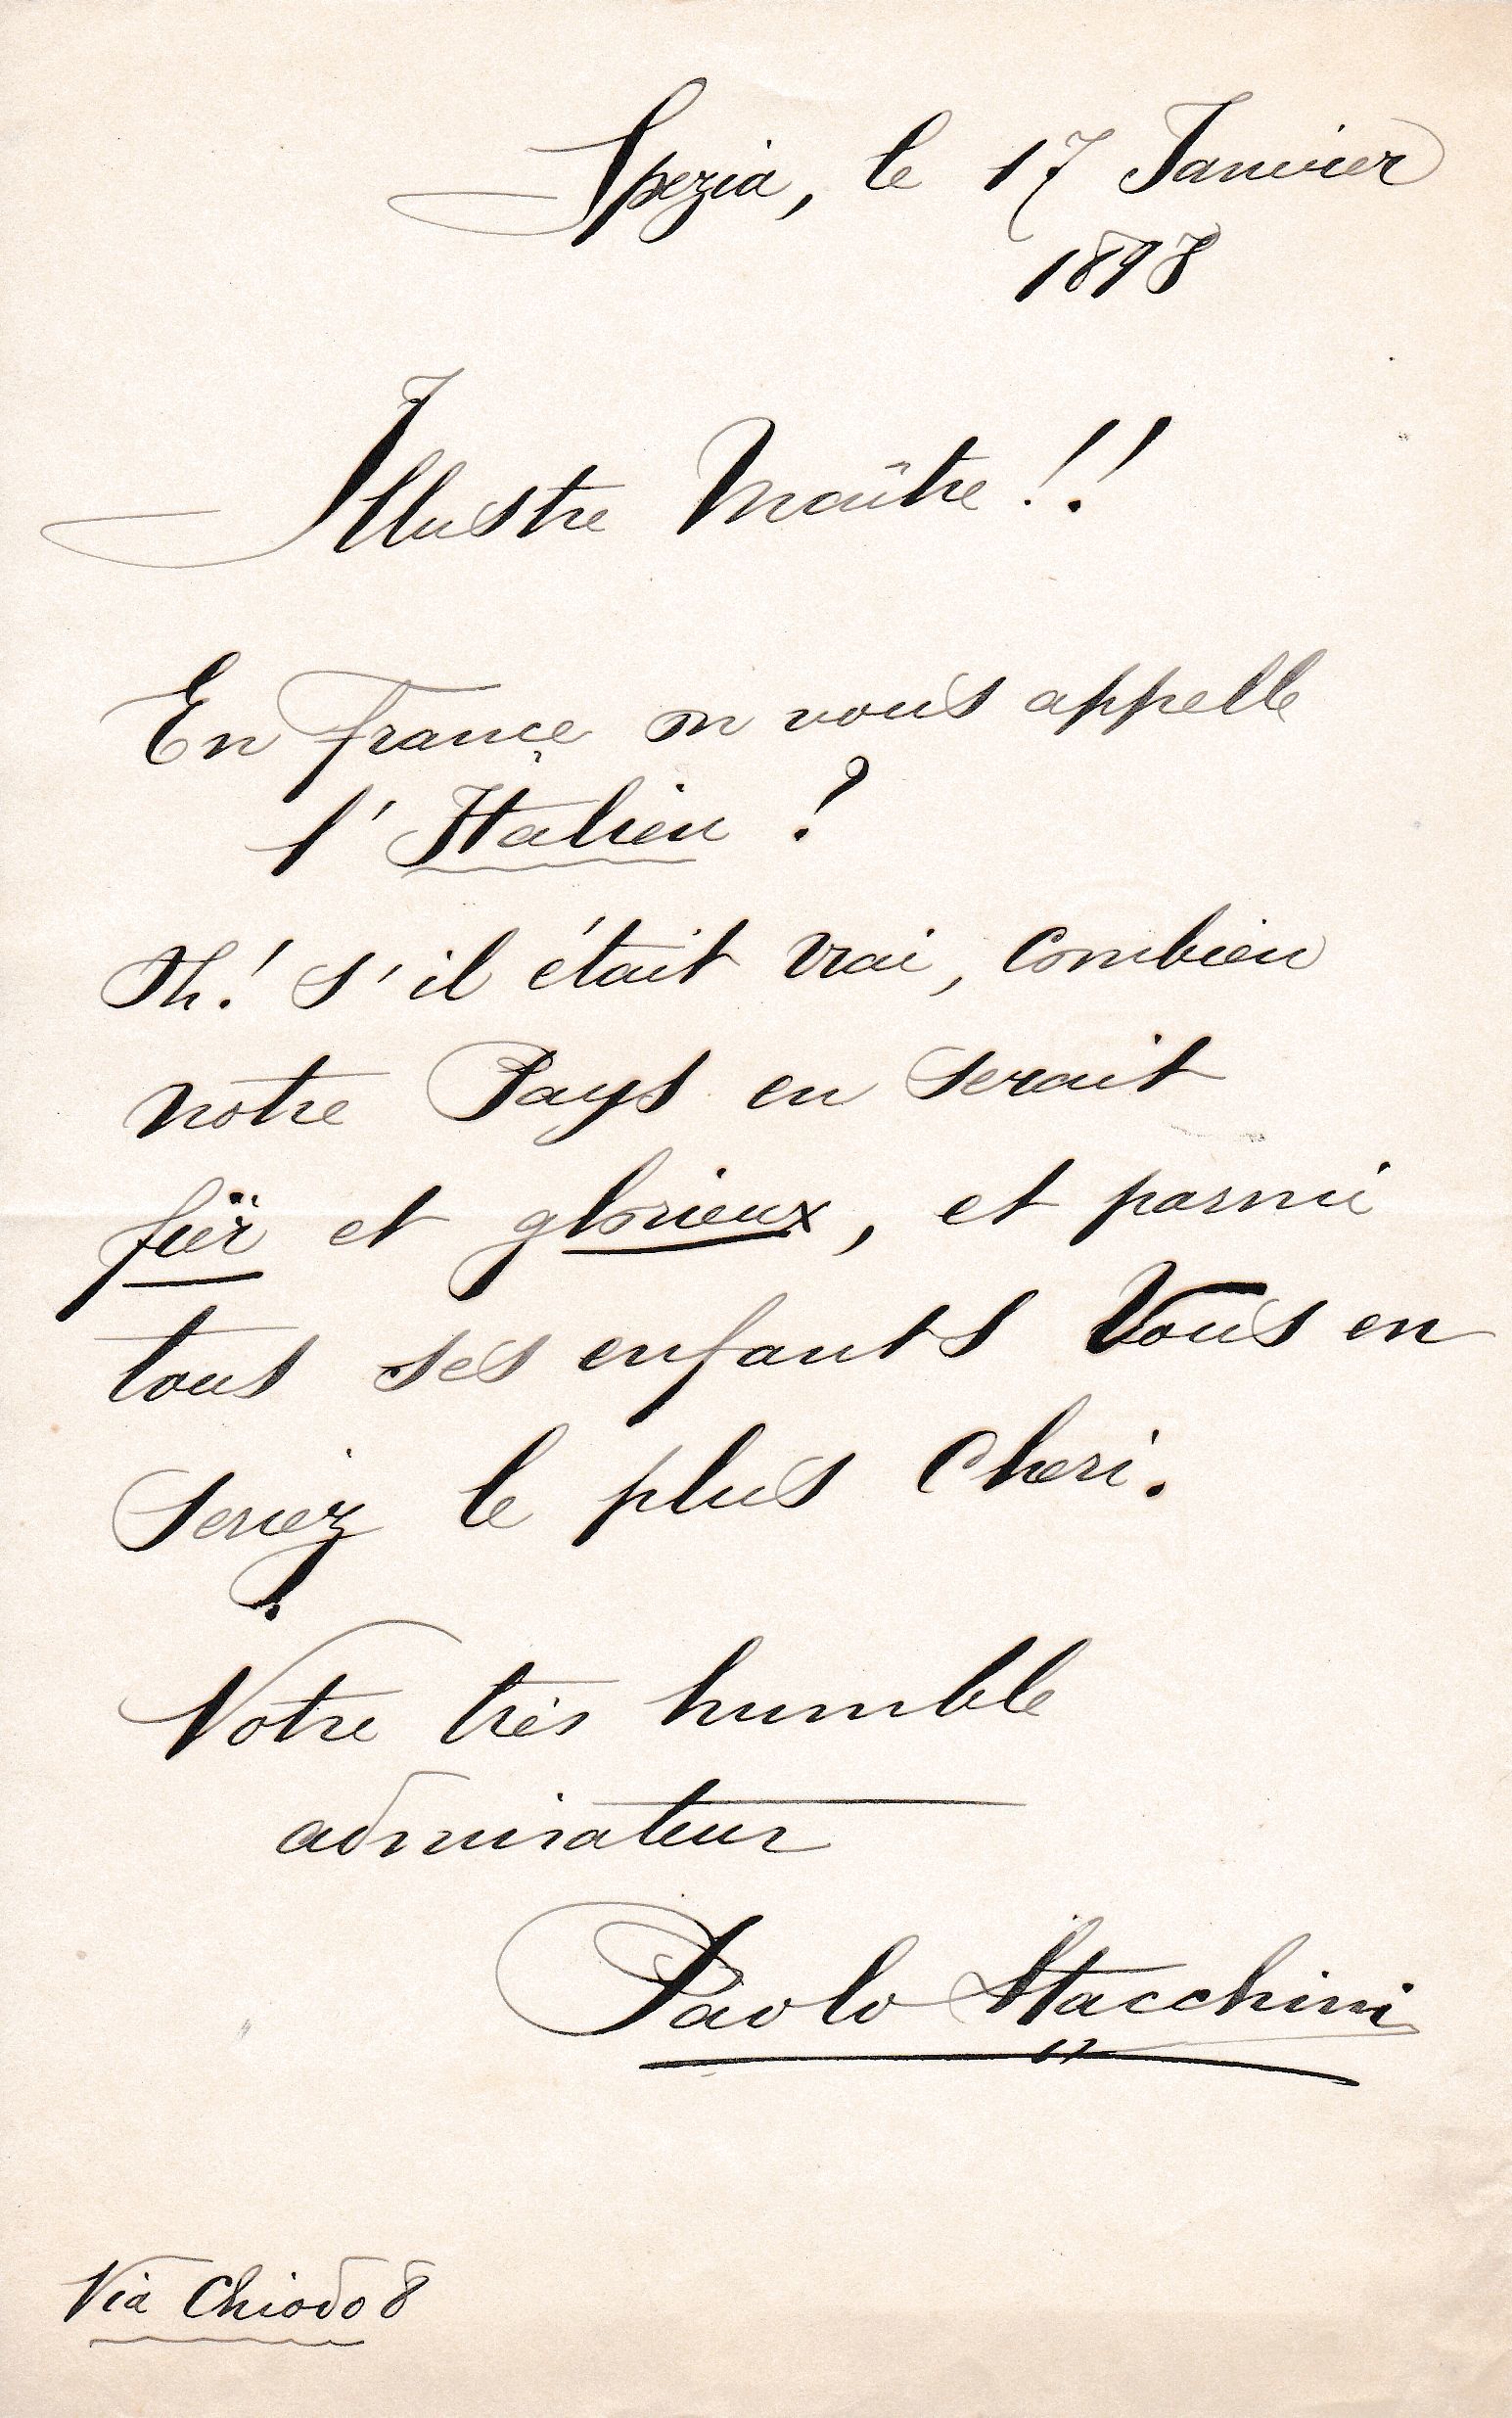 Spezia, le 17 Janvier
1898
Illustre Maître!!
En Françe on vous appelle
l'Italien?
Oh! s'il était vrai, combien
notre Pays en serait
fier et glorieux, et parmi
tous ses enfants Vous en
seriez le plus cheri.
Votre très humble
admirateur
Paolo Stacchini
Via Chiodo 8